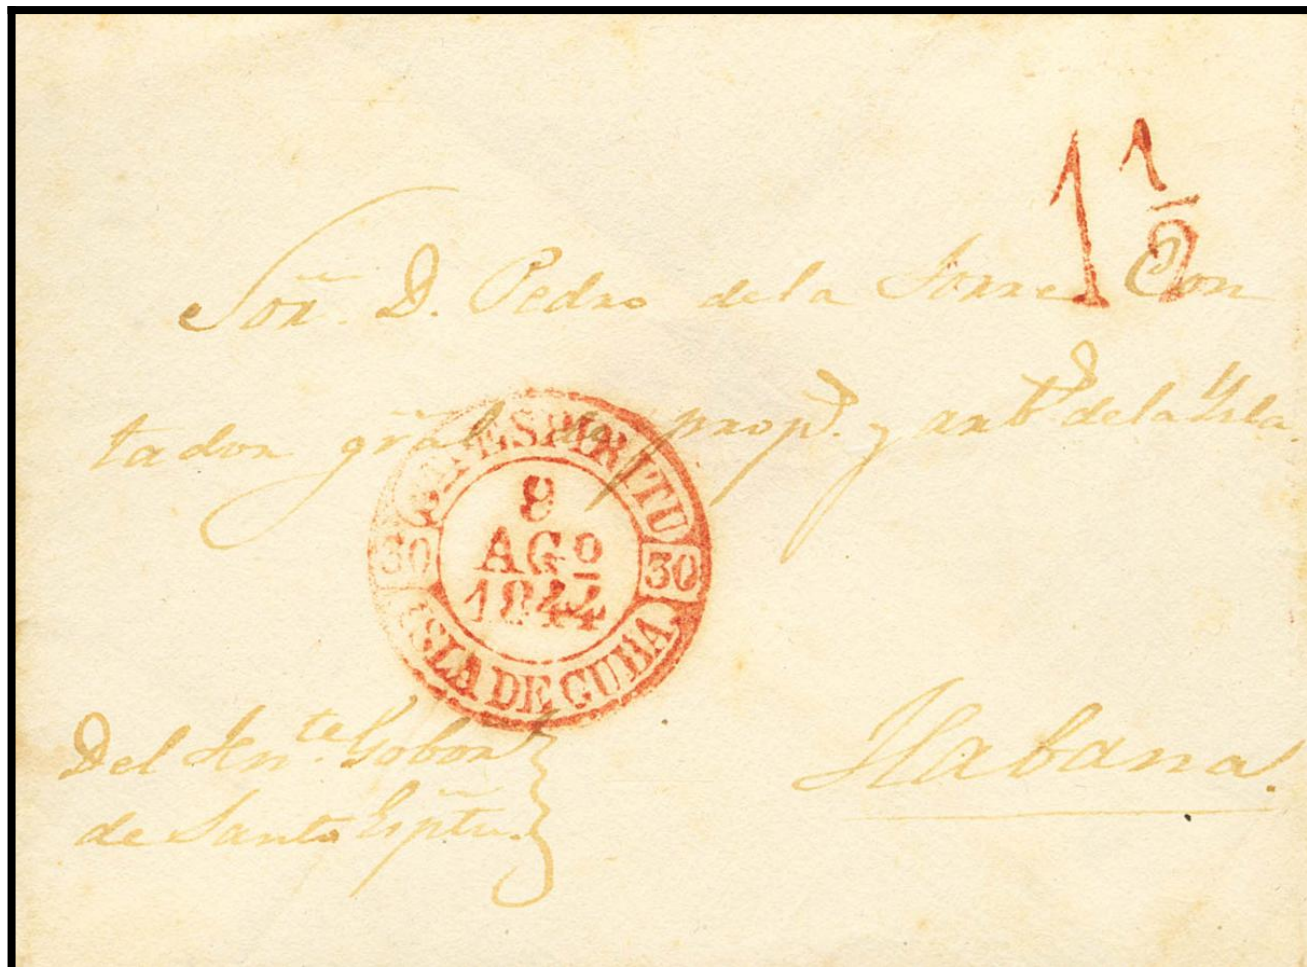 1 1/2
Sor. D. Pedro de la Torre Con
tador gral. de prop.s y arb.s de la Ysla.
STI. ESPIRITU
30 8 30
AGº
1844
ISLA DE CUBA
Del Ten.te Gobor.
de Santo Esptu.
Habana.